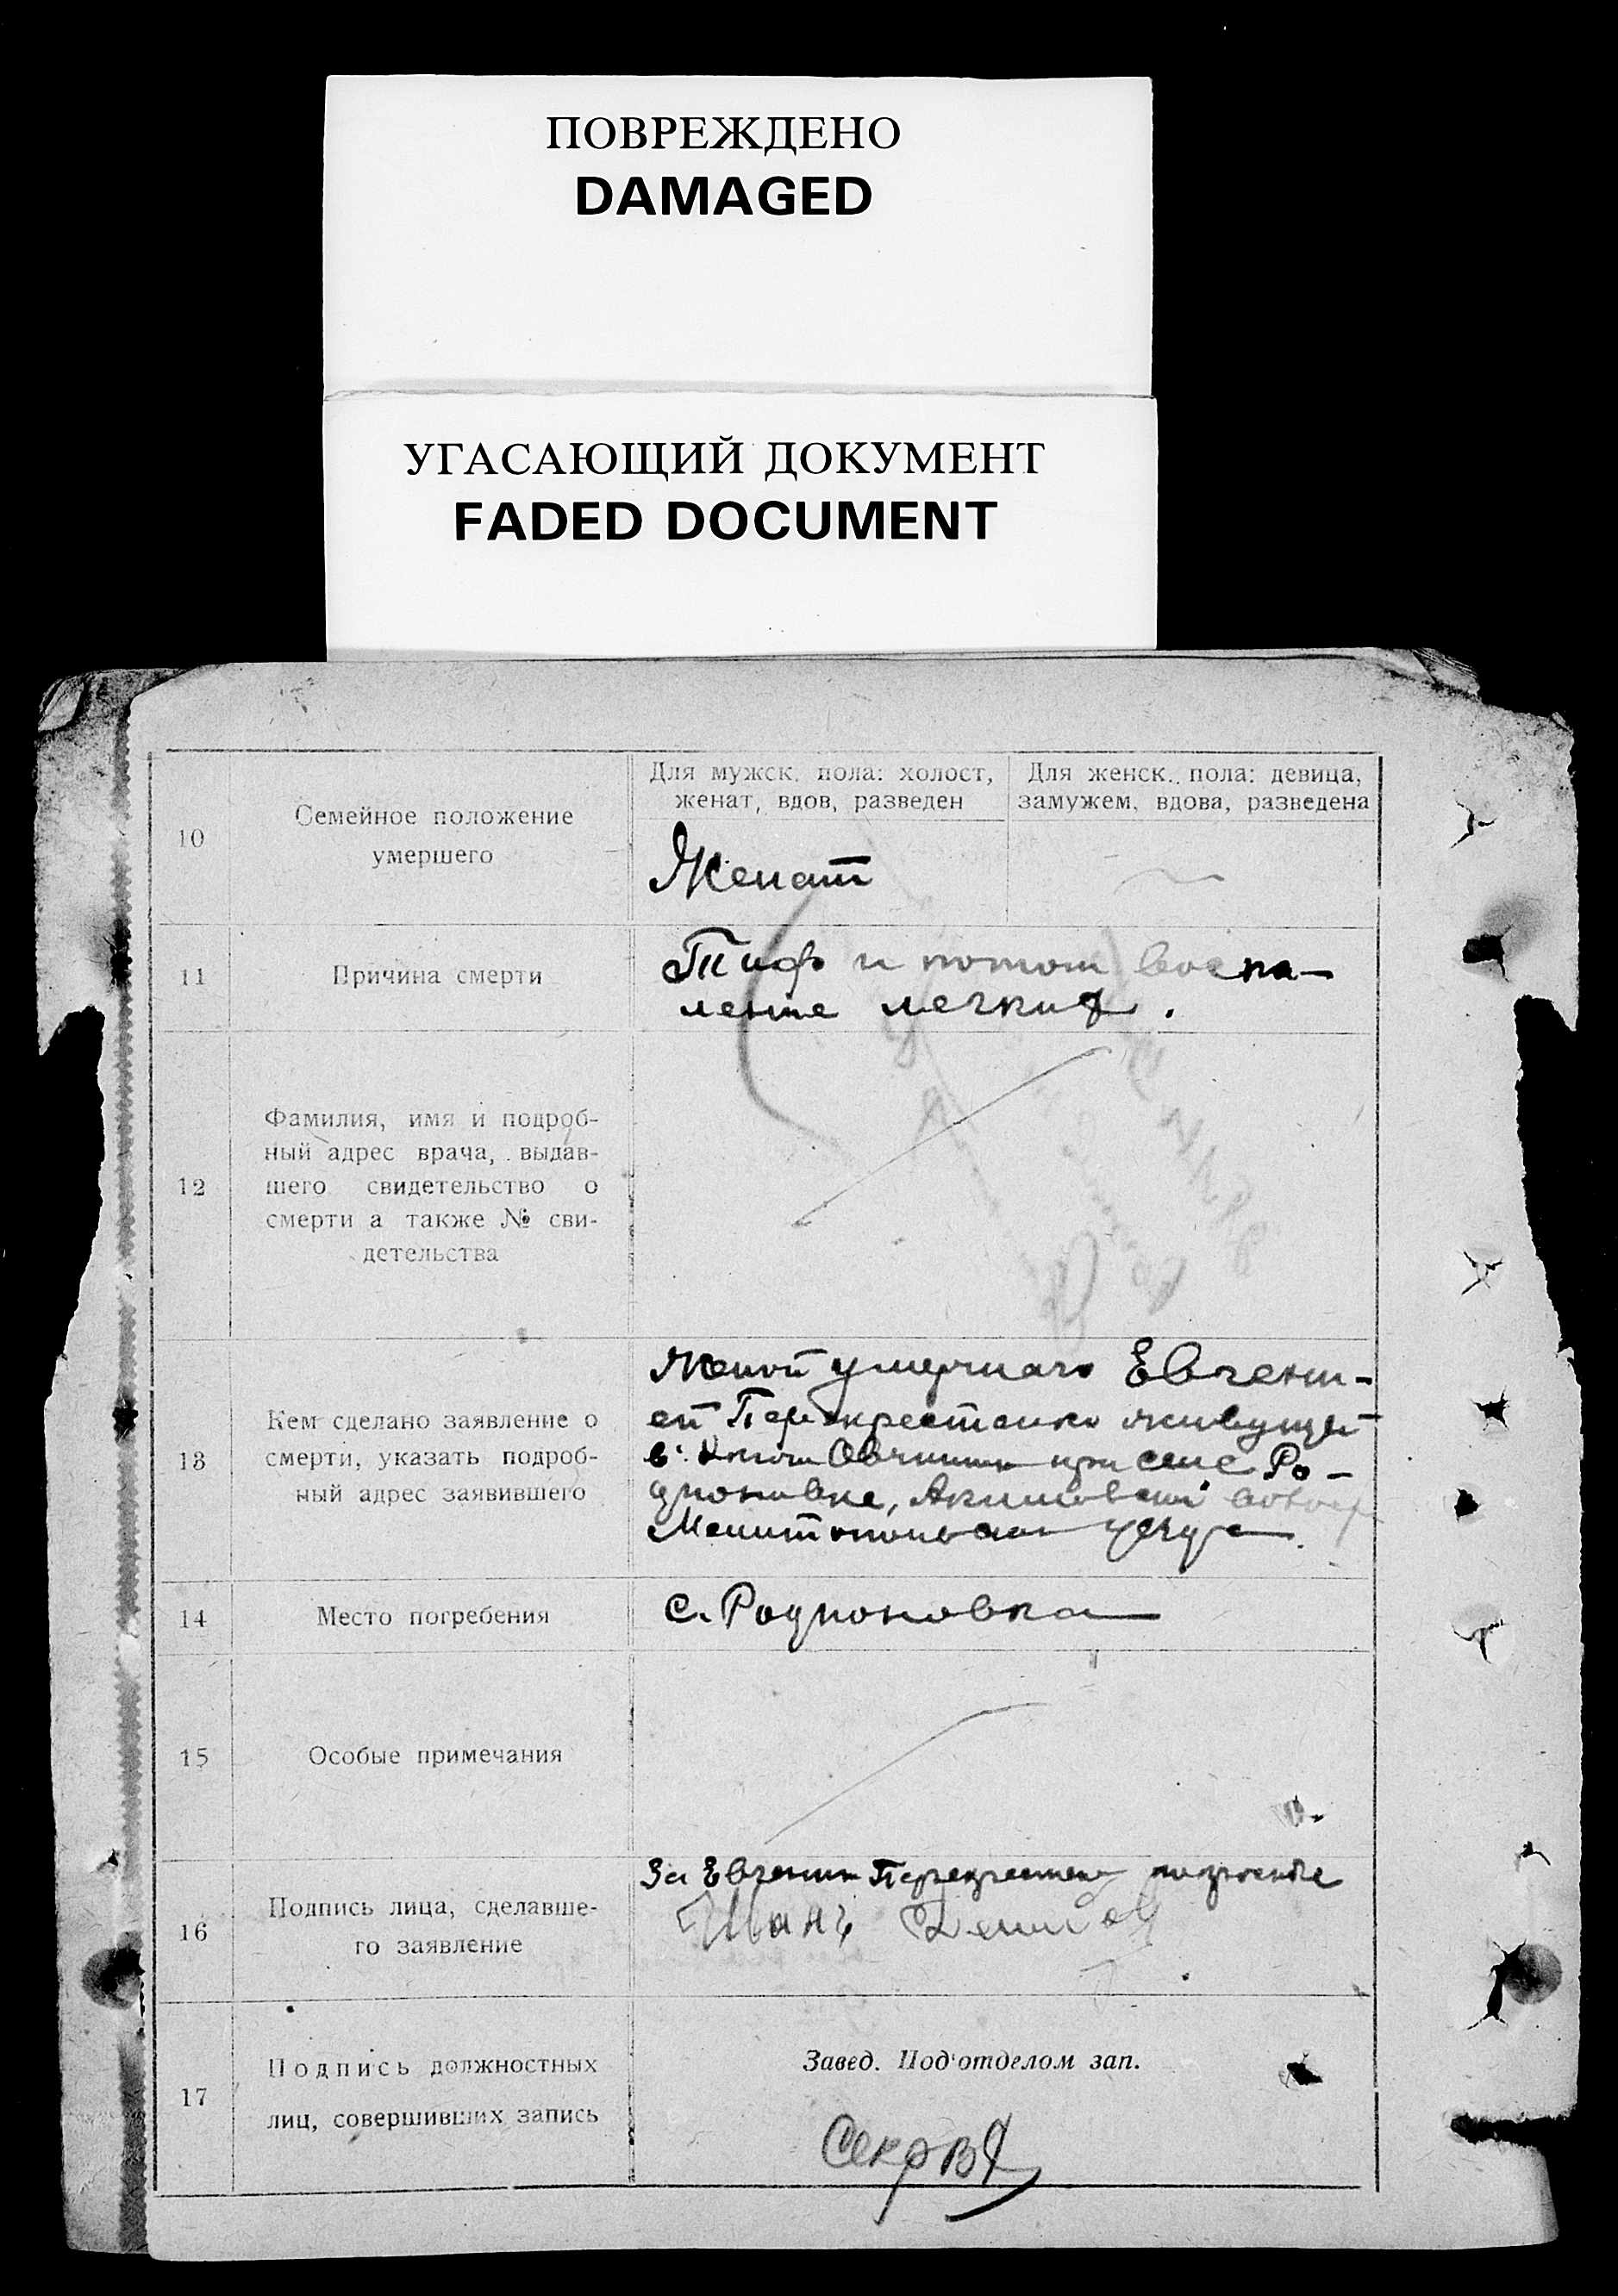 ПОВРЕЖДЕНО
DAMAGED
УГАСАЮЩИЙ ДОКУМЕНТ
FADED DOCUMENT
10
Семейное положение
умершего
Для мужск. пола: холост,
женат, вдов, разведен
Для женск. пола: девица,
замужем, вдова, разведена
Женат
11
Причина смерти
Тиф и потом воспа-
ление легких.
12
Фамилия, имя и подроб-
ный адрес врача, выдав-
шего свидетельство о
смерти а также № сви-
детельства
13
Кем сделано заявление о
смерти, указать подроб-
ный адрес заявившего
Женой умершаго Евгени-
ей живущей
в при селе Ро-
дионовке, Акимовской
Мелитопольского уезда.
14
Место погребения
с. Родионовка
15
Особые примечания
16
Подпись лица, сделавше-
го заявление
За Евгению
Иванъ
17
Подпись должностных
лиц, совершивших запись
Завед. Под'отделом зап.